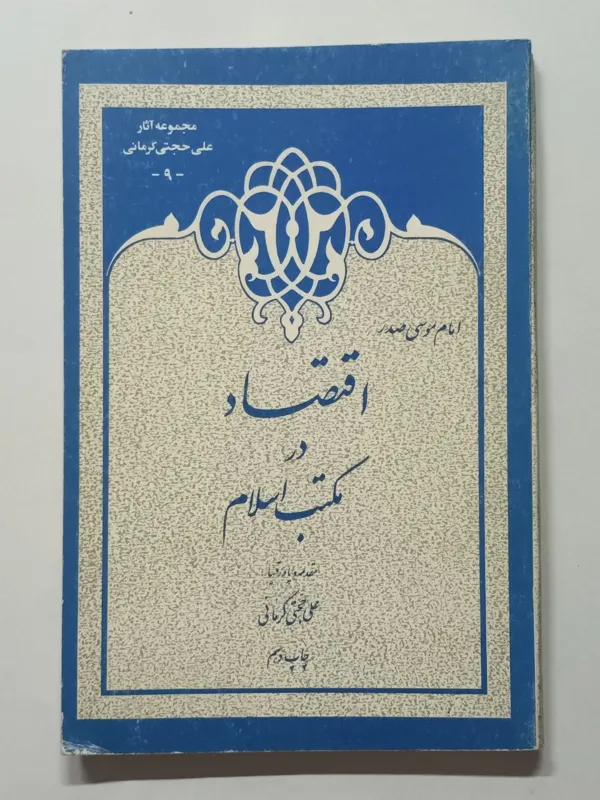 مجموعه آثار
علی حجتی کرمانی
- ۹ -
امام موسی صدر
اقتصاد
در
مکتب اسلام
مقدمه و پاورقیها
علی حجتی کرمانی
چاپ دهم